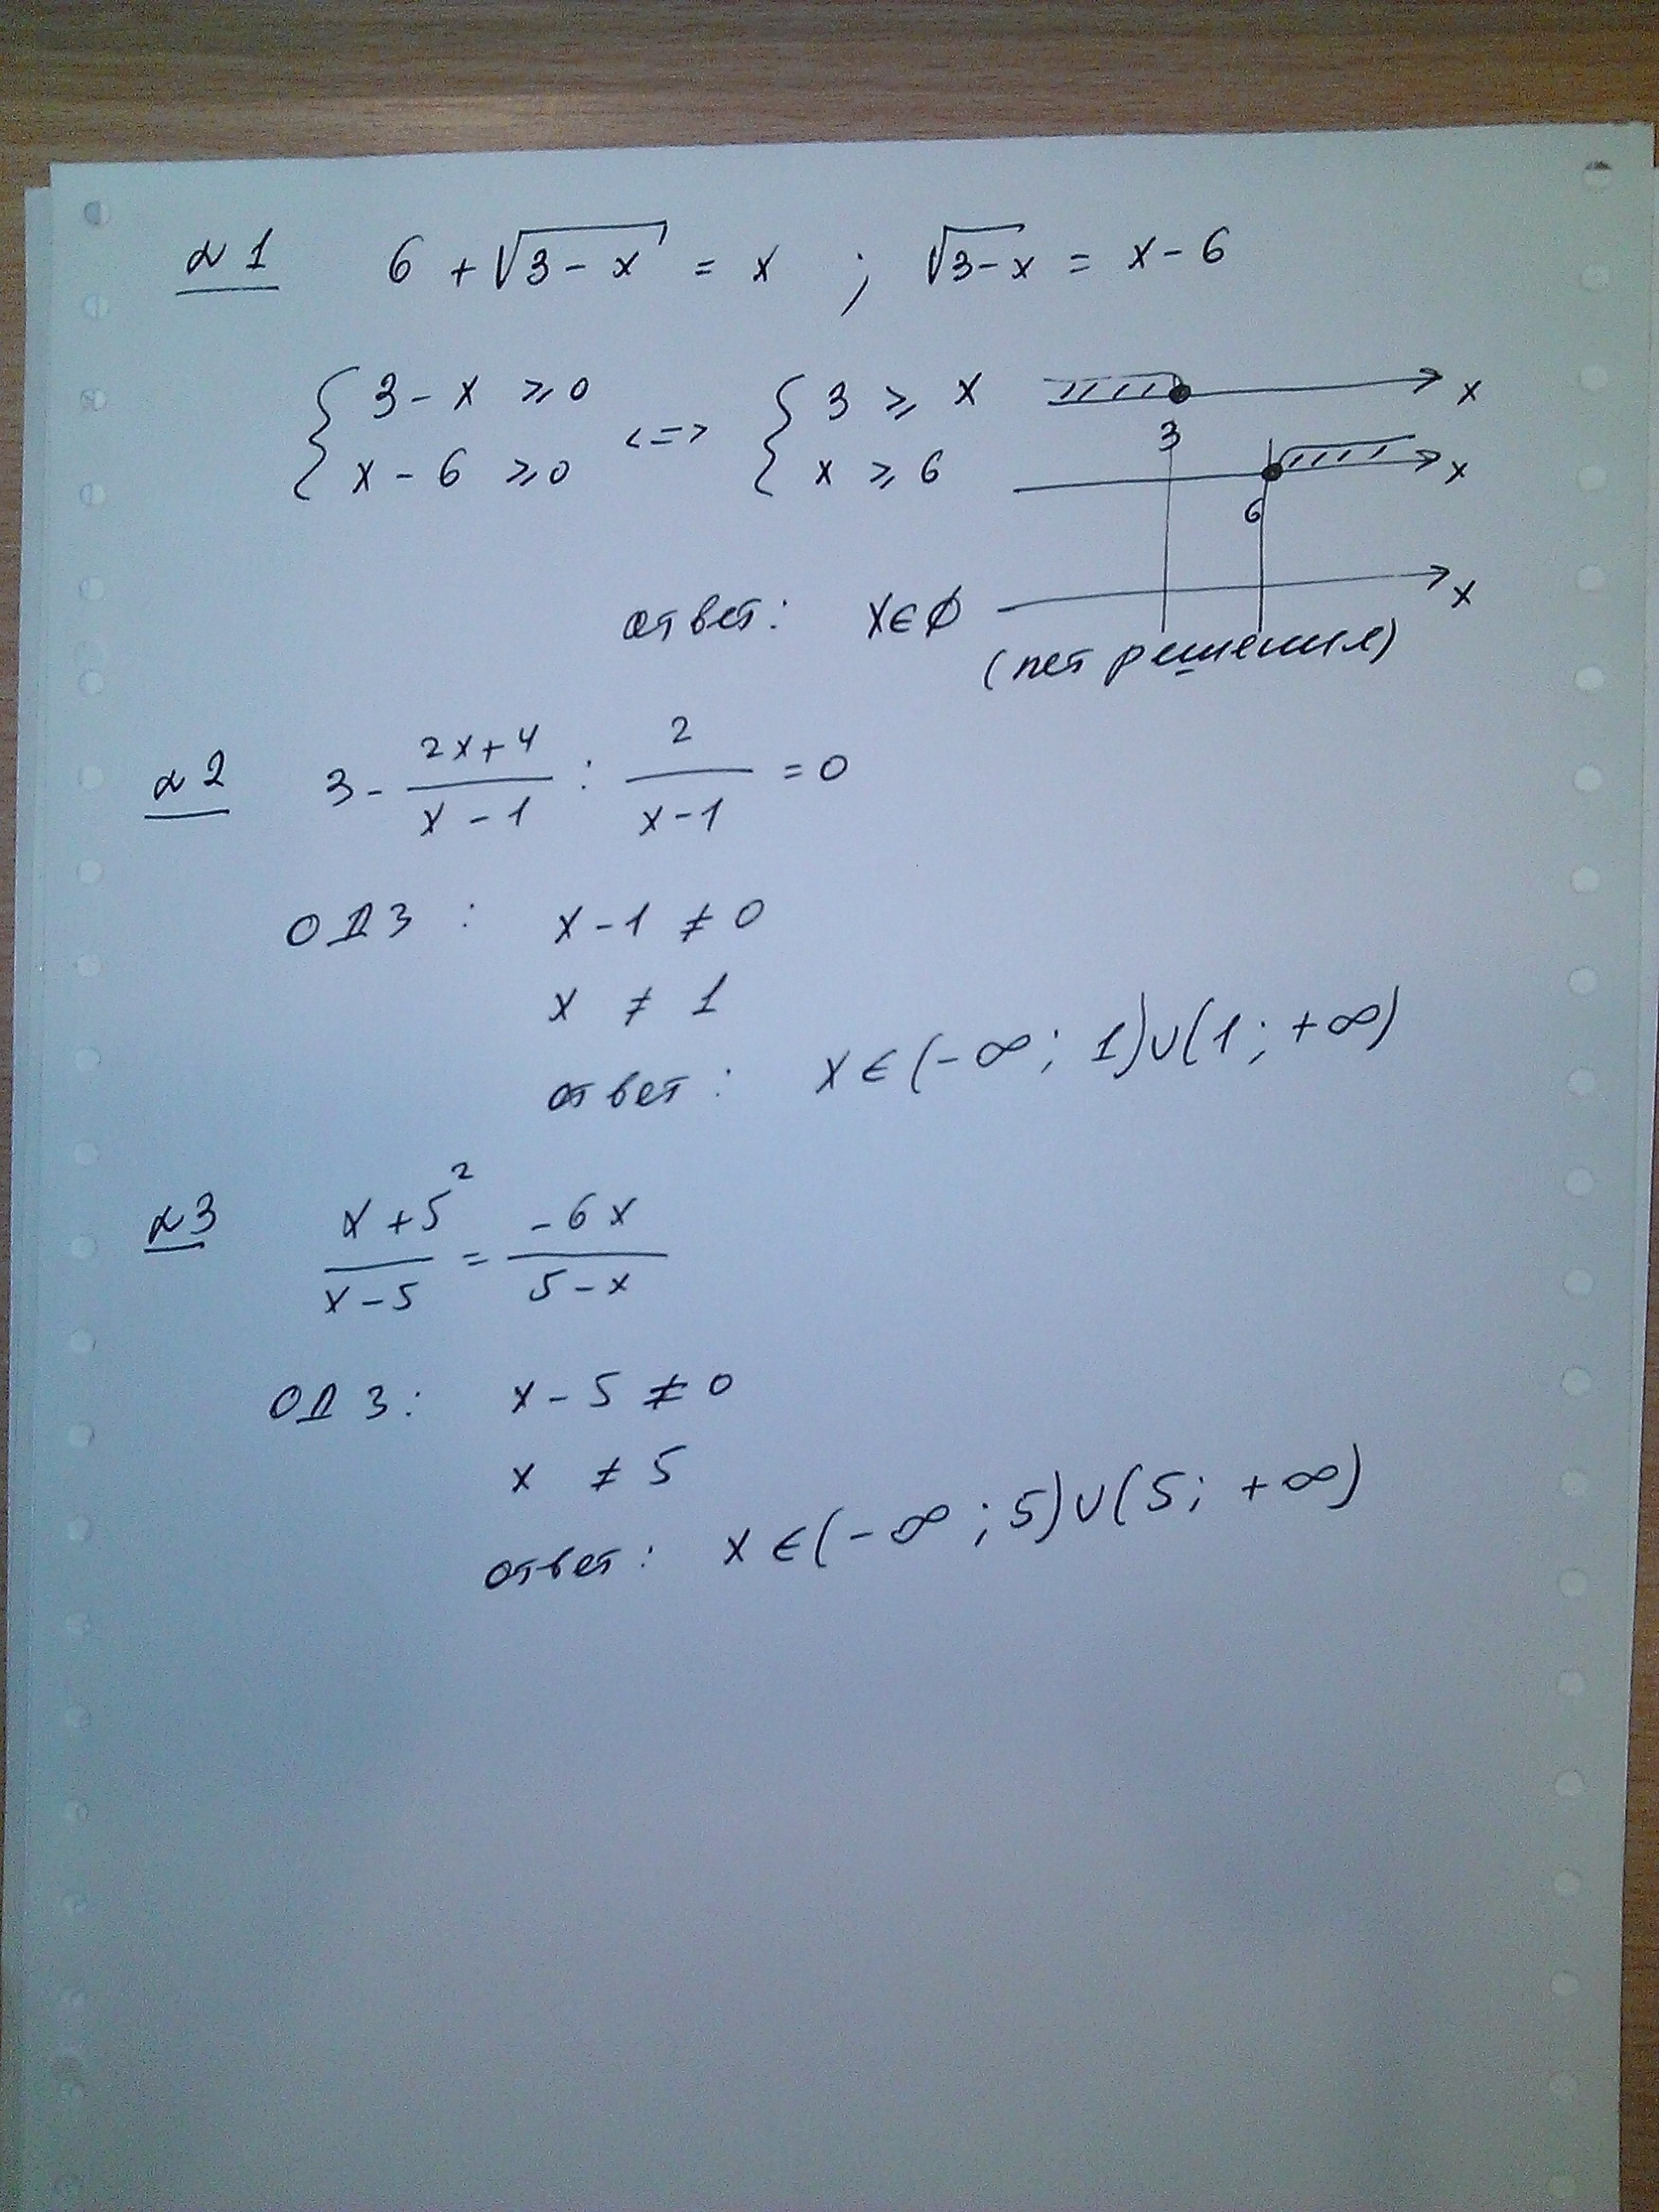 №1 6 + √(3 - x) = x ; √(3-x) = x - 6
{ 3 - x ≥ 0 <=> { 3 ≥ x x
x - 6 ≥ 0 x ≥ 6 3 x
6
ответ: x ∈ ∅ x
(нет решения)
№2 3 - (2x+4)/(x-1) : 2/(x-1) = 0
ОДЗ : x - 1 ≠ 0
x ≠ 1
ответ : x ∈ (-∞; 1)∪(1; +∞)
№3 (x+5²)/(x-5) = (-6x)/(5-x)
ОДЗ: x - 5 ≠ 0
x ≠ 5
ответ: x ∈ (-∞; 5)∪(5; +∞)